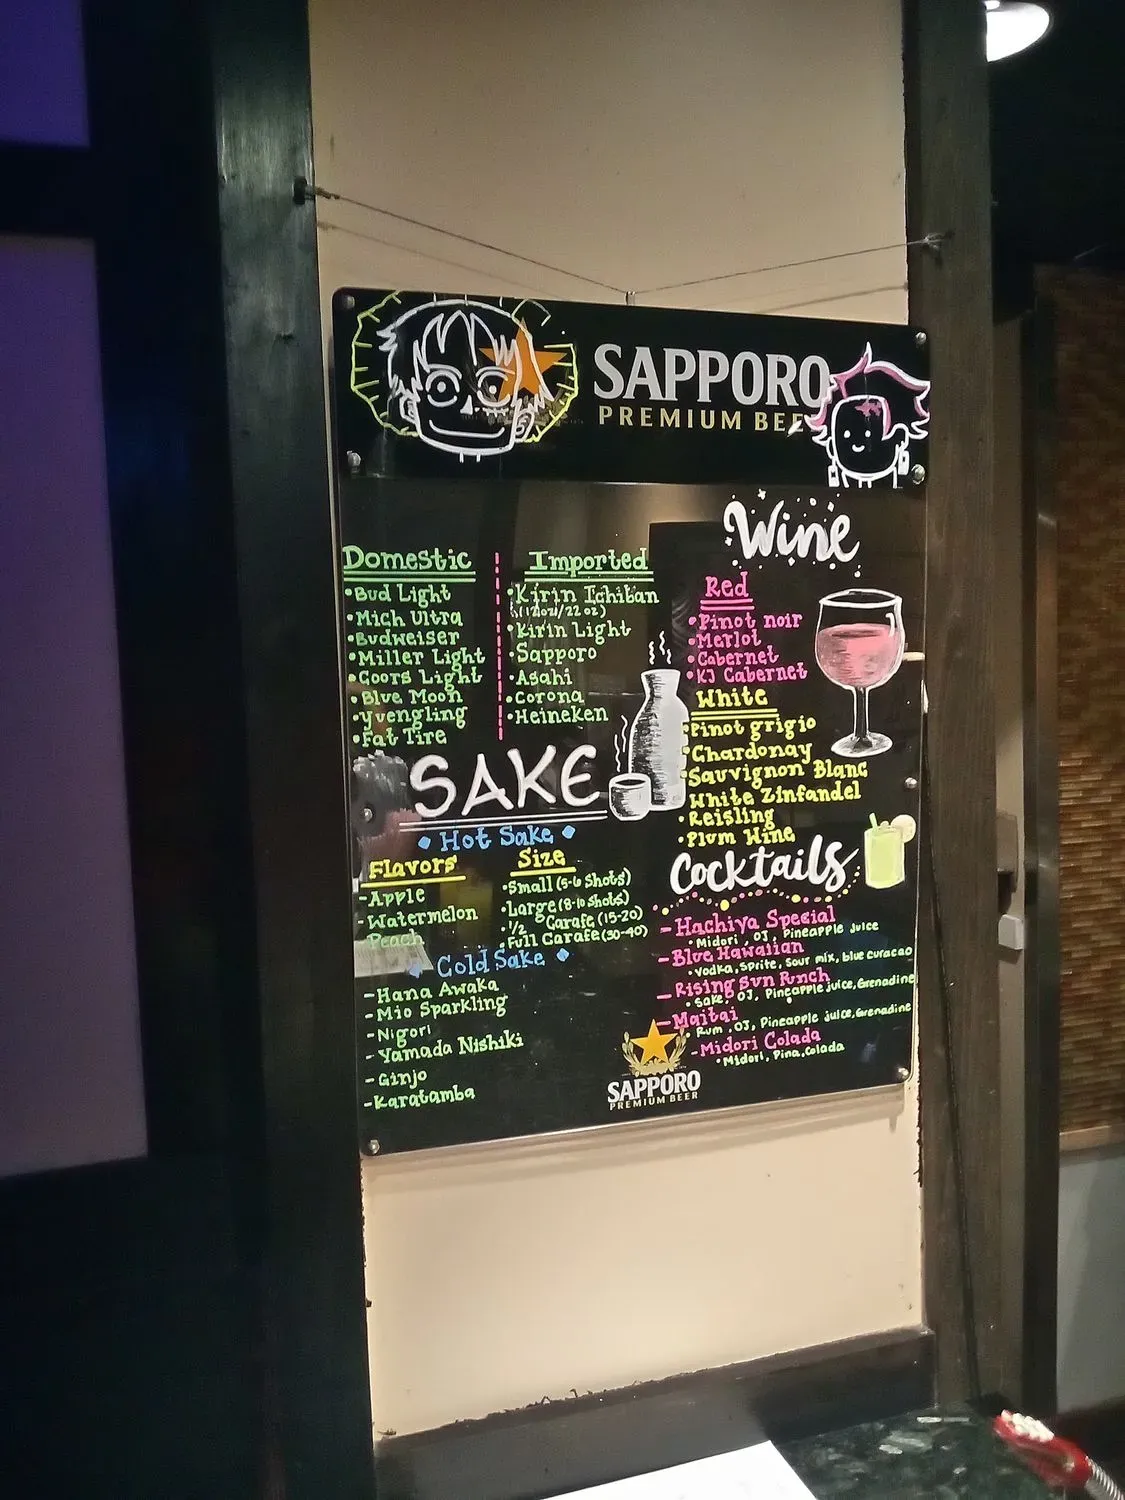 SAPPORO
PREMIUM BEER
Domestic
•Bud Light
•Mich Ultra
•Budweiser
•Miller Light
•Coors Light
•Blue Moon
•Yuengling
•Fat Tire
Imported
•Kirin Ichiban
(12oz/22oz)
•Kirin Light
•Sapporo
•Asahi
•Corona
•Heineken
Wine
Red
•Pinot noir
•Merlot
•Cabernet
•KJ Cabernet
White
•Pinot grigio
•Chardonay
•Sauvignon Blanc
•White Zinfandel
•Reisling
•Plum Wine
SAKE
•Hot Sake•
Flavors
-Apple
Watermelon
Peach
Size
•Small (5-6 Shots)
•Large (8-10 Shots)
•1/2 Carafe (15-20)
•Full Carafe (30-40)
•Cold Sake•
-Hana Awaka
-Mio Sparkling
-Nigori
-Yamada Nishiki
-Ginjo
-Karatamba
Cocktails
-Hachiya Special
•Midori, OJ, Pineapple juice
-Blue Hawaiian
•Vodka, Sprite, Sour mix, blue curacao
-Rising Sun Punch
•Sake, OJ, Pineapple juice, Grenadine
-Maitai
•Rum, OJ, Pineapple juice, Grenadine
-Midori Colada
•Midori, Pina Colada
SAPPORO
PREMIUM BEER